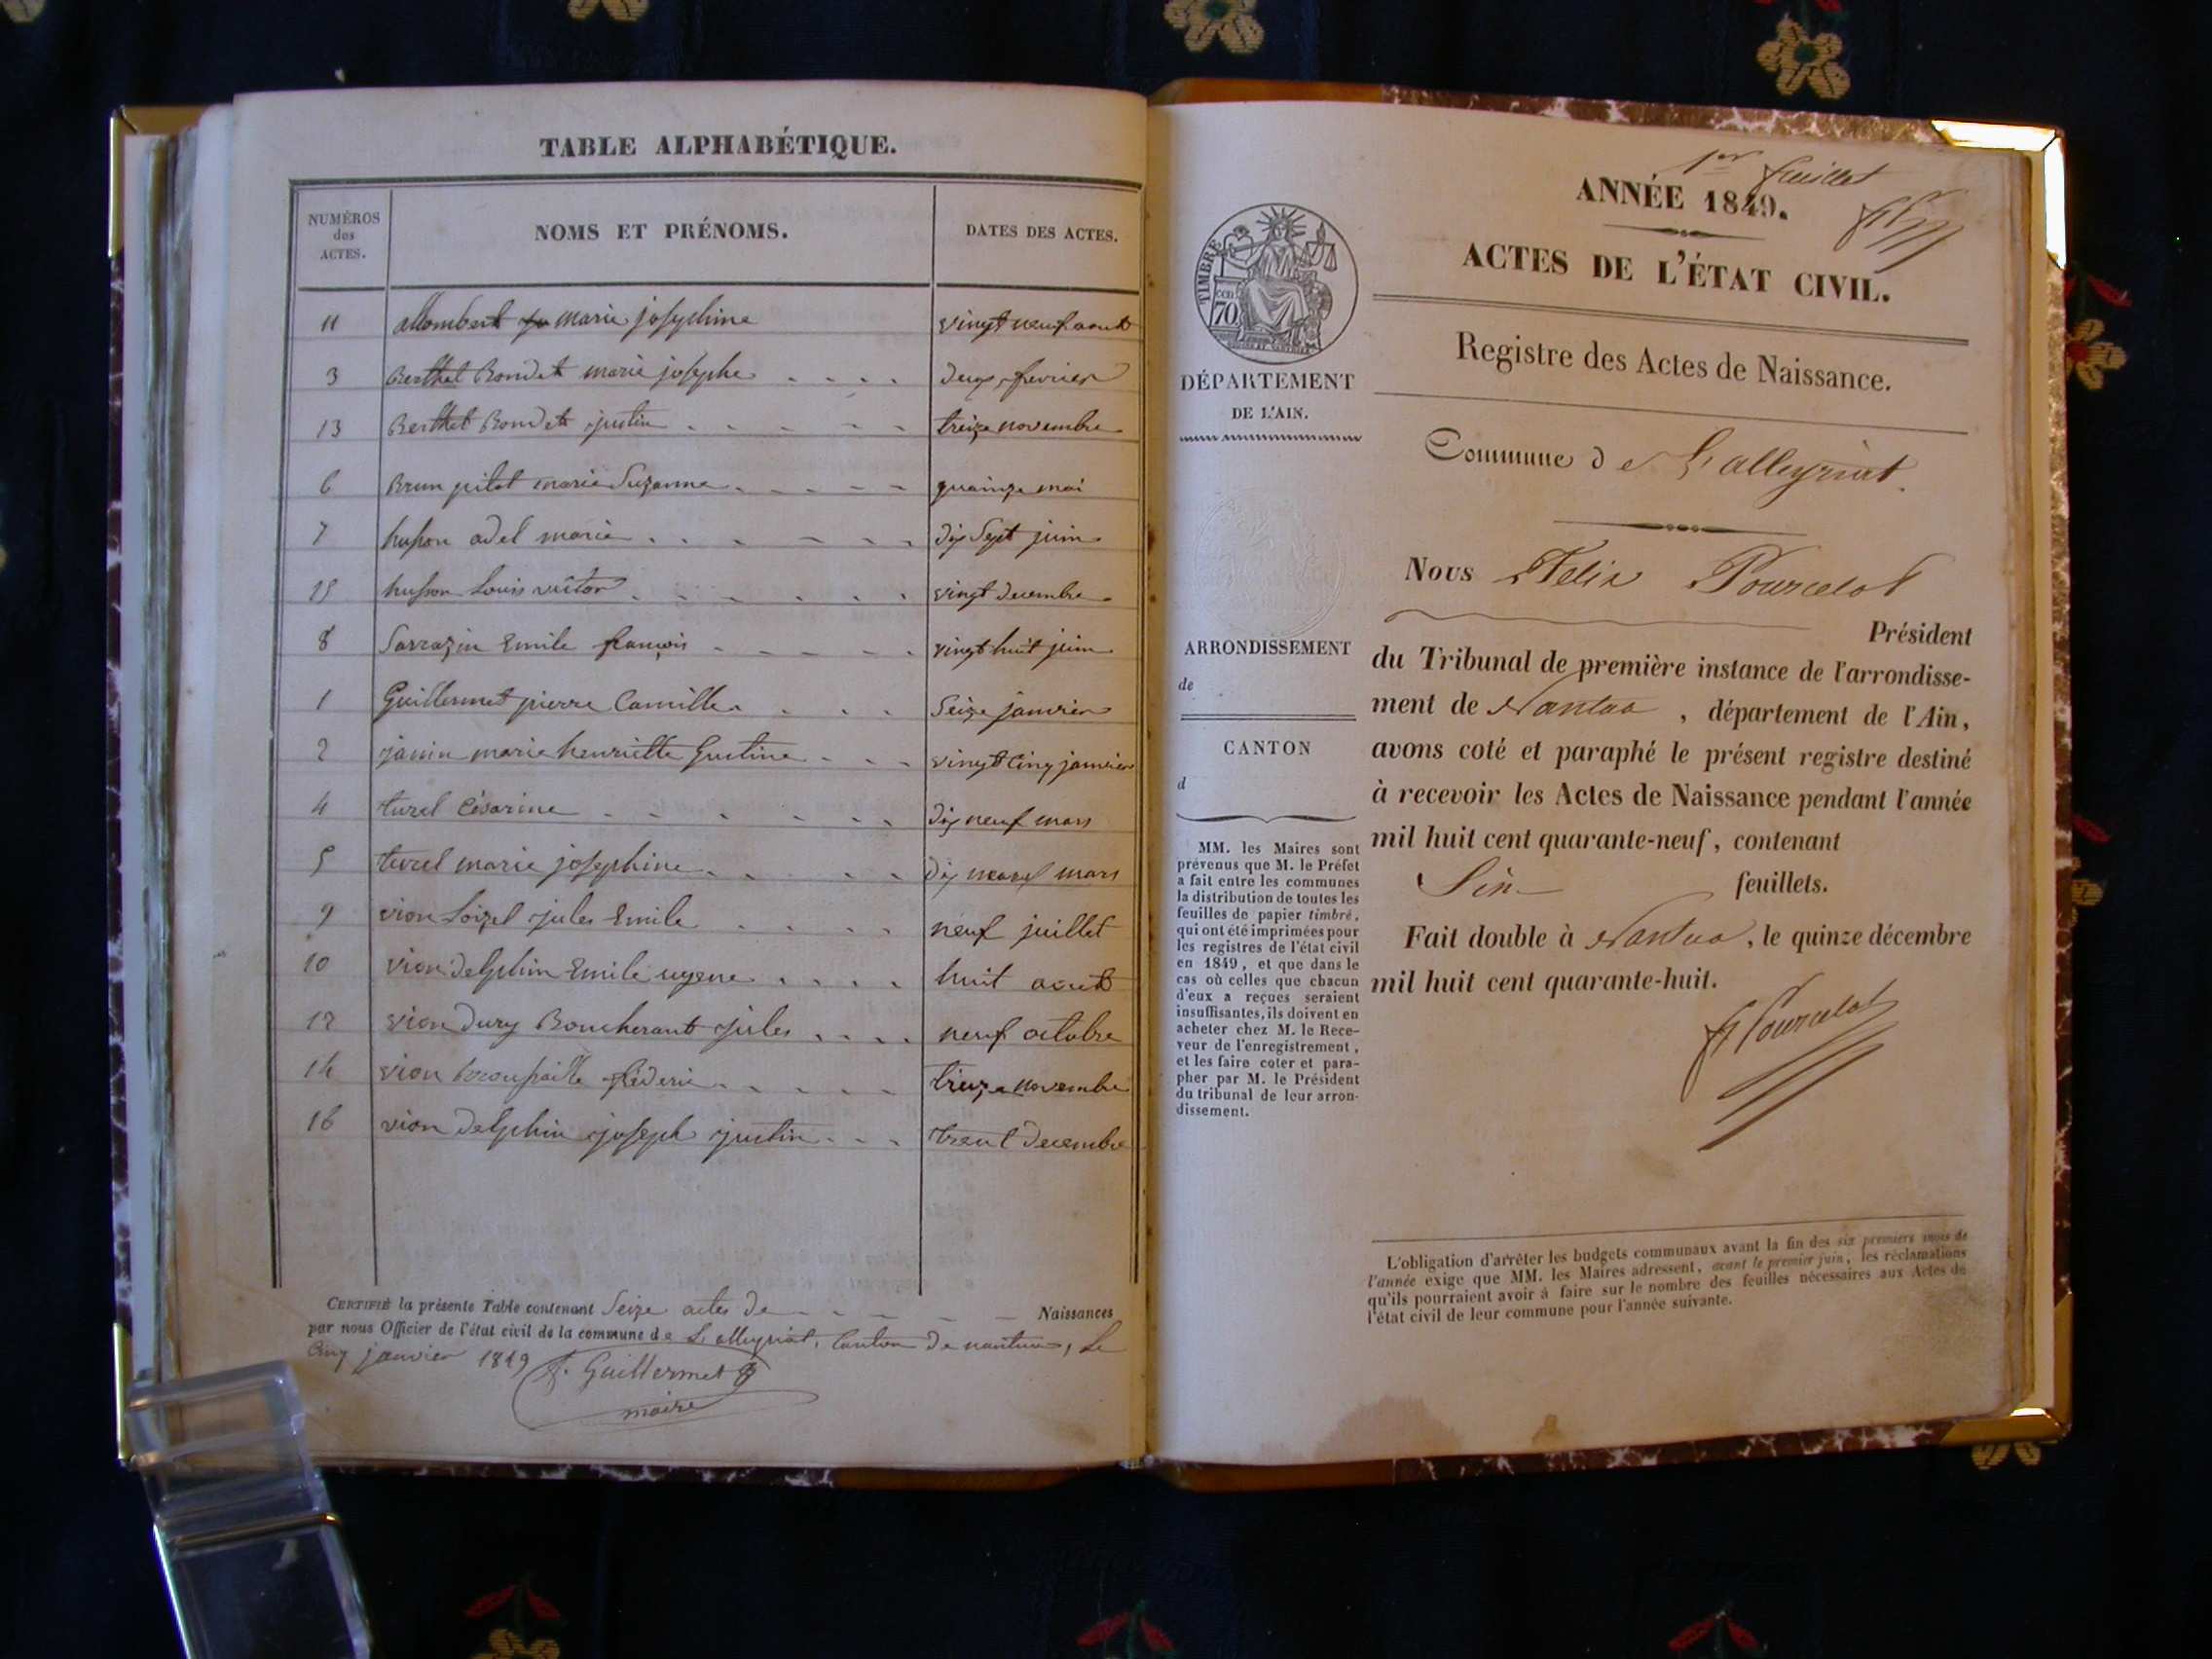 TABLE ALPHABÉTIQUE.
NUMÉROS
des
ACTES.
NOMS ET PRÉNOMS.
DATES DES ACTES.
11 allombert marie josephine vingt neuf aout
3 Berthet Bondet marie josephe deux fevrier
13 Berthet Bondet justin treize novembre
6 Brun pitot marie Suzanne quainze mai
7 husson adel marie dix Sept juin
15 husson Louis victor vingt decembre
8 Sarrazin Emile françois vingt huit juin
1 Guillermet pierre Camille Seize janvier
2 janin marie henriette justine vingt cinq janvier
4 turel Césarine dix neuf mars
5 turel marie josephine dix neuf mars
9 vion Loizel jules Emile neuf juillet
10 vion delphin Emile ugene huit aout
12 vion Dury Boucherant jules neuf octobre
14 vion féderic treize novembre
16 vion delphin joseph justin trent decembre
CERTIFIÉ la présente Table contenant Seize actes de Naissances
par nous Officier de l'état civil de la commune de Lalleyriat, Canton de nantua, le
Cinq janvier 1849 Guillermet
maire
1er feuillet
ANNÉE 1849.
ACTES DE L'ÉTAT CIVIL.
Registre des Actes de Naissance.
TIMBRE
cen
70
DÉPARTEMENT
DE L'AIN.
Commune de Lalleyriat.
Nous Felix Pourcelot
Président
du Tribunal de première instance de l'arrondisse-
ment de Nantua, département de l'Ain,
avons coté et paraphé le présent registre destiné
à recevoir les Actes de Naissance pendant l'année
mil huit cent quarante-neuf, contenant
Six feuillets.
Fait double à Nantua, le quinze décembre
mil huit cent quarante-huit.
Pourcelot
ARRONDISSEMENT
de
CANTON
d
MM. les Maires sont
prévenus que M. le Préfet
a fait entre les communes
la distribution de toutes les
feuilles de papier timbré,
qui ont été imprimées pour
les registres de l'état civil
en 1849, et que dans le
cas où celles que chacun
d'eux a reçues seraient
insuffisantes, ils doivent en
acheter chez M. le Rece-
veur de l'enregistrement,
et les faire coter et para-
pher par M. le Président
du tribunal de leur arron-
dissement.
L'obligation d'arrêter les budgets communaux avant la fin des six premiers mois de
l'année exige que MM. les Maires adressent, avant le premier juin, les réclamations
qu'ils pourraient avoir à faire sur le nombre des feuilles nécessaires aux Actes de
l'état civil de leur commune pour l'année suivante.